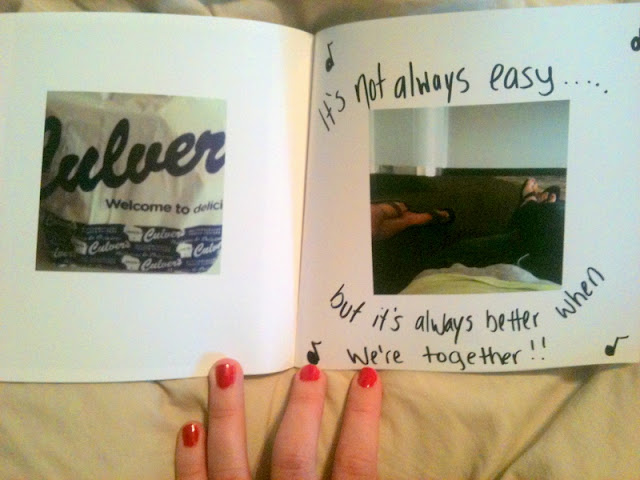 Culver
Welcome to delici
Culver's
Culver's
Culver's
It's not always easy.....
but it's always better when
We're together!!